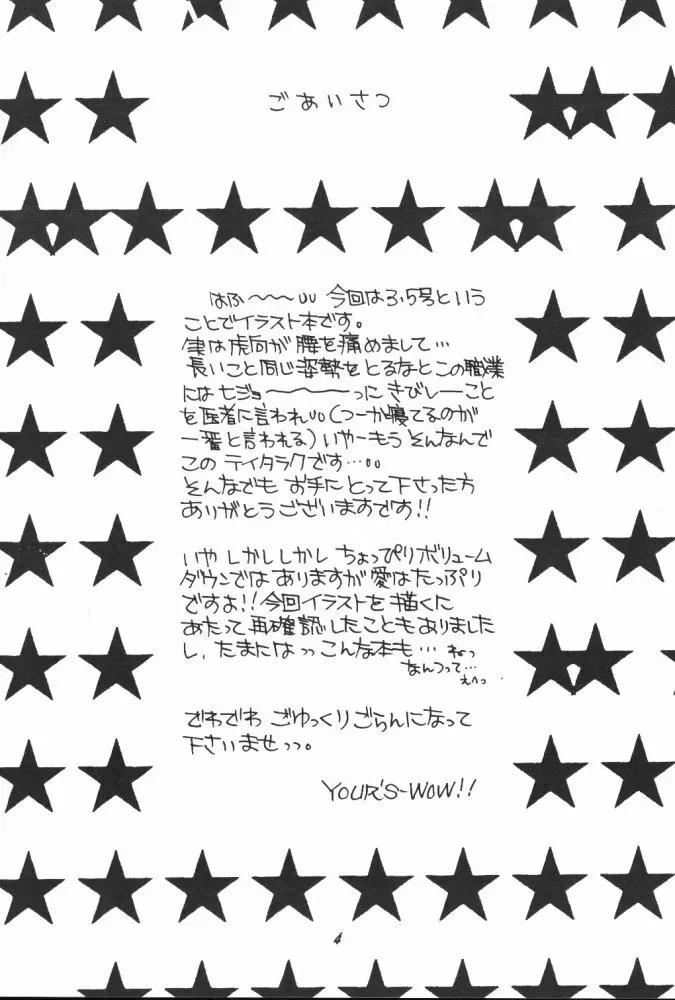 ごあいさつ
はふ〜〜〜〜υυ 今回は3.5号という
ことでイラスト本です。
実は虎向が腰を痛めまして…
長いこと同じ姿勢をとるなとこの職業
には七ジョ〜〜〜〜っにきびしーこと
を医者に言われυυ(つーか寝てるのが
一番と言われる)いやーもう そんなんで
この テイタラクです…υυ
そんなでも お手にとって下さった方
ありがとうございますです!!
いや しかししかし ちょっぴりボリューム
ダウンでは ありますが愛はたっぷり
ですよ!!今回イラストを 描くに
あたって 再確認したこともありました
し、たまにはっっ こんな本も… ねっ
なんつって…
えへっ
でわでわ ごゆっくりごらんになって
下さいませっっ。
YOUR'S-WOW!!
4